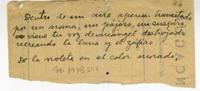 Dentro de un aire apenas transitado
por un aroma, un pájaro, un suspiro,
viene tu voz de arcángel despojado
recreando la luna y el zafiro.
Es la violeta en el color morado,